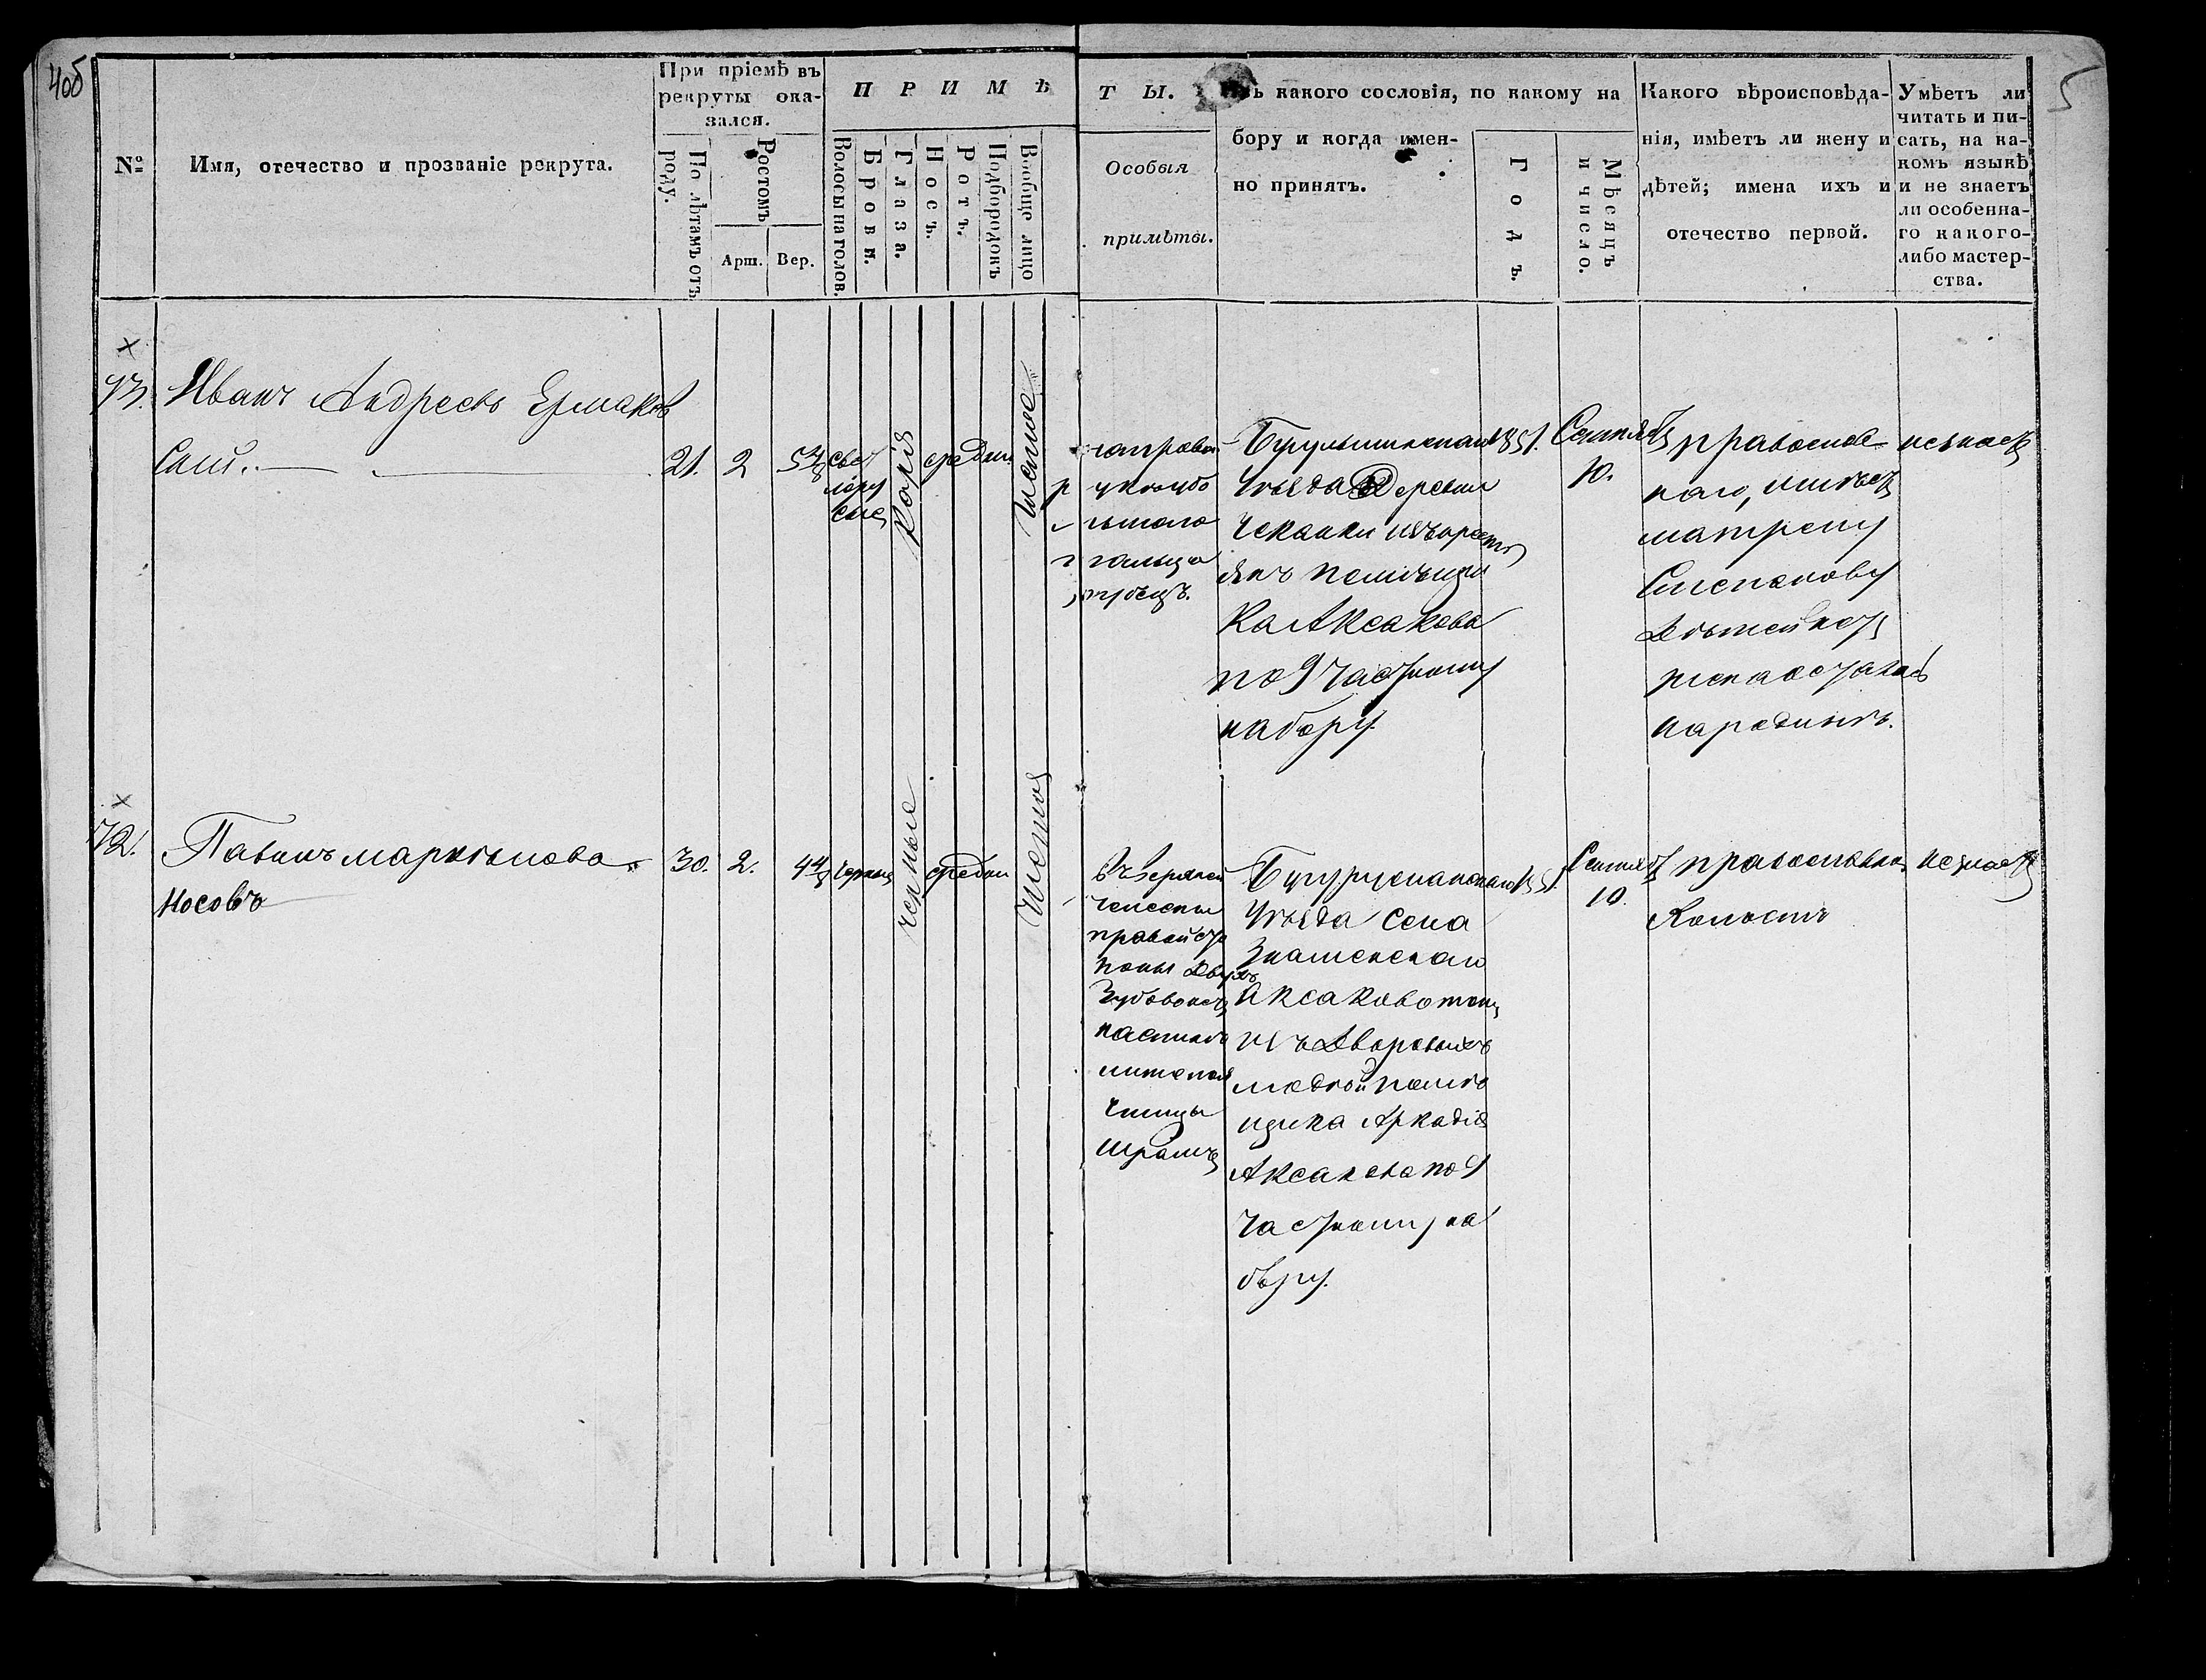 406
5
№
Имя, отечество и прозваніе рекрута.
При пріемѣ въ
рекруты ока-
зался.
По лѣтамъ отъ
роду.
Ростомъ
Арш. Вер.
П Р И М Ѣ
Волосы на голов.
Брови.
Глаза.
Носъ.
Ротъ.
Подбородокъ
Вообще лицо
Т Ы.
Особыя
примѣты.
какого сословія, по какому на
бору и когда имен-
но принятъ.
Годъ.
Мѣсяцъ
и число.
Какого вѣроисповѣда-
нія, имѣетъ ли жену и
дѣтей; имена ихъ и
отечество первой.
Умѣетъ ли
читать и пи-
сать, на ка-
комъ языкѣ
и не знаетъ
ли особенна-
го какого-
либо мастер-
ства.
Иванъ Андреевъ Ермаков
21. 2
свет
лору
сые
карія
средни
чистое
Бугульминскаго
уѣзда Деревни
Чекалки изъ крестъ
янъ помѣщи
ка Аксакова
по 9 частному
набору
1851.
Сентяб
10.
православ
наго, имѣетъ
матрену
Степанову
Дѣтей нетъ
жена осталась
народинѣ.
незнаетъ
72.
Павилъ маркѣлова
Носовъ
30. 2. 4 4/8
черные
черные
средни
чистое
Въ верхней
челюсти
правой сто
роны двухъ
Зубовъ нетъ
шрамъ
Бугурусланскаго
Уѣзда села
Знаменскаго
Аксаково тожъ
изъ Дворовыхъ
людей помѣ
щика Аркадія
Аксакова по 9
частному на
бору.
1851.
Сентяб
10.
православнаго
Холостъ
незнаетъ